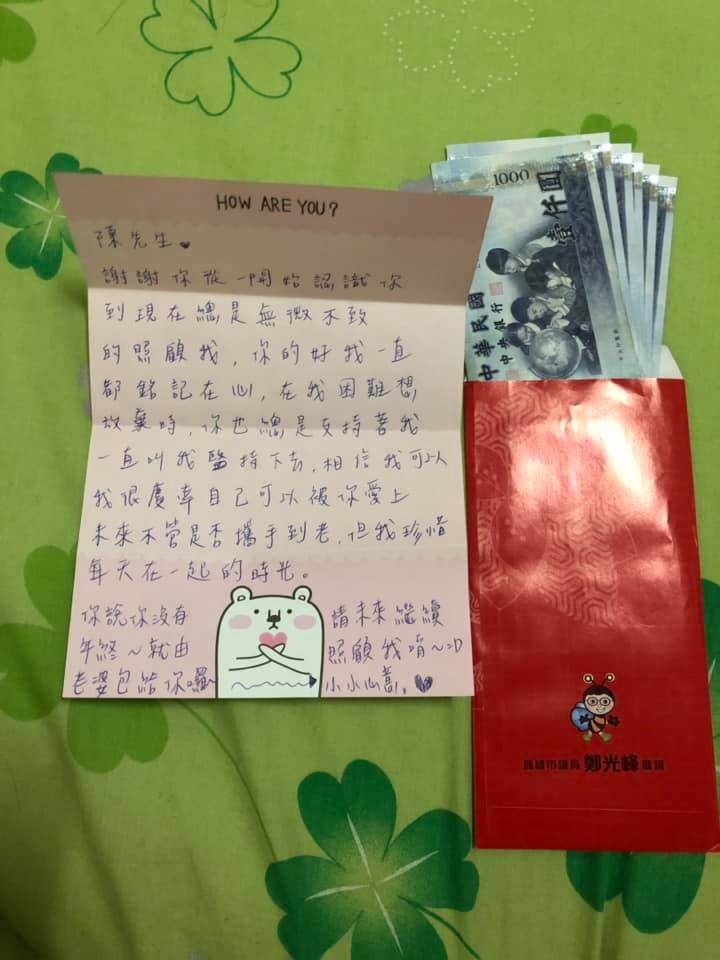 HOW ARE YOU?
陳先生
謝謝你從一開始認識你
到現在總是無微不致
的照顧我,你的好我一直
都銘記在心,在我困難想
放棄時,你也總是支持著我
一直叫我堅持下去,相信我可以
我很慶幸自己可以被你愛上
未來不管是否攜手到老,但我珍惜
每天在一起的時光。
你說你沒有
年終~就由
老婆包給你囉~
請未來繼續
照顧我唷~=D
小小心意。
1000
壹仟圓
中華民國
中央銀行
高雄市議員 鄭光峰 敬賀